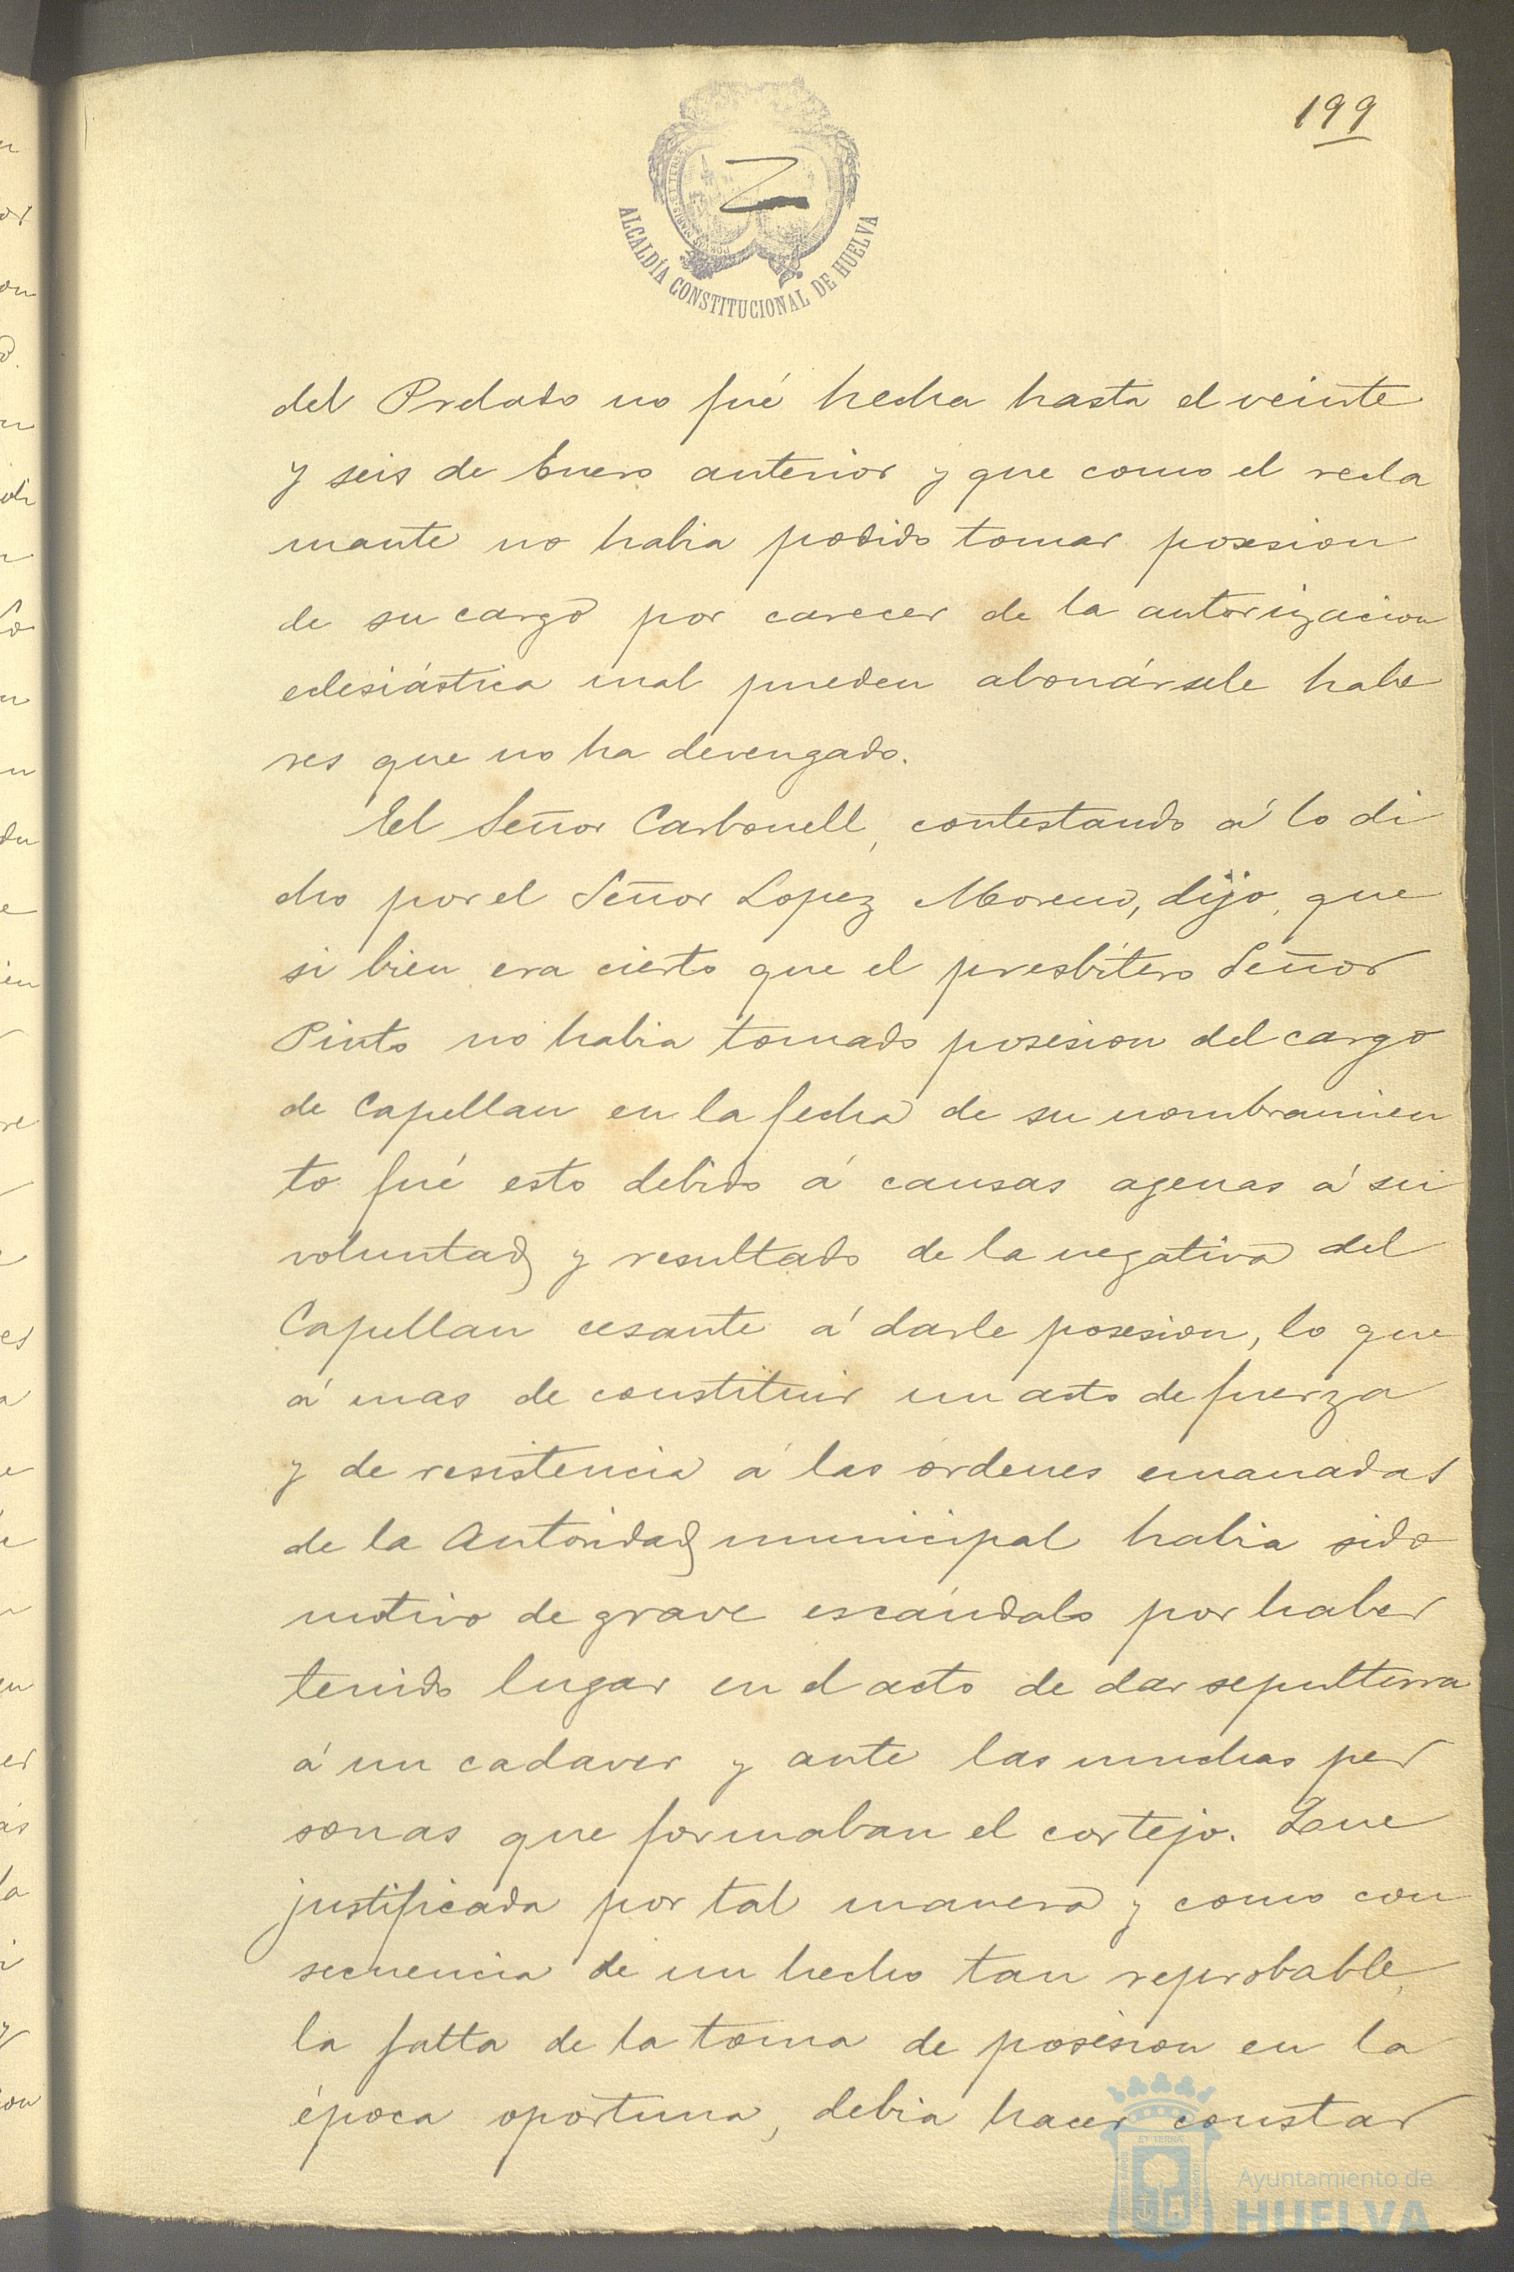 199
ALCALDÍA CONSTITUCIONAL DE HUELVA
del Prelado no fué hecha hasta el veinte
y seis de Enero anterior y que como el recla
mante no habia podido tomar posesion
de su cargo por carecer de la autorizacion
eclesiástica mal pueden abonársele habe
res que no ha devengado.
El Señor Carbonell, contestando á lo di
cho por el Señor Lopez Moreno, dijo, que
si bien era cierto que el presbítero Señor
Pinto no habia tomado posesion del cargo
de Capellan en la fecha de su nombramien
to fué esto debido á causas agenas á su
voluntad y resultado de la negativa del
Capellan cesante á darle posesion, lo que
á mas de constituir un acto de fuerza
y de resistencia á las órdenes emanadas
de la Autoridad municipal habia sido
motivo de grave escándalo por haber
tenido lugar en el acto de dar sepultura
á un cadaver y ante las muchas per
sonas que formaban el cortejo. Que
justificada por tal manera y como con
secuencia de un hecho tan reprobable,
la falta de la toma de posesion en la
época oportuna, debia hacer constar
Ayuntamiento de
HUELVA